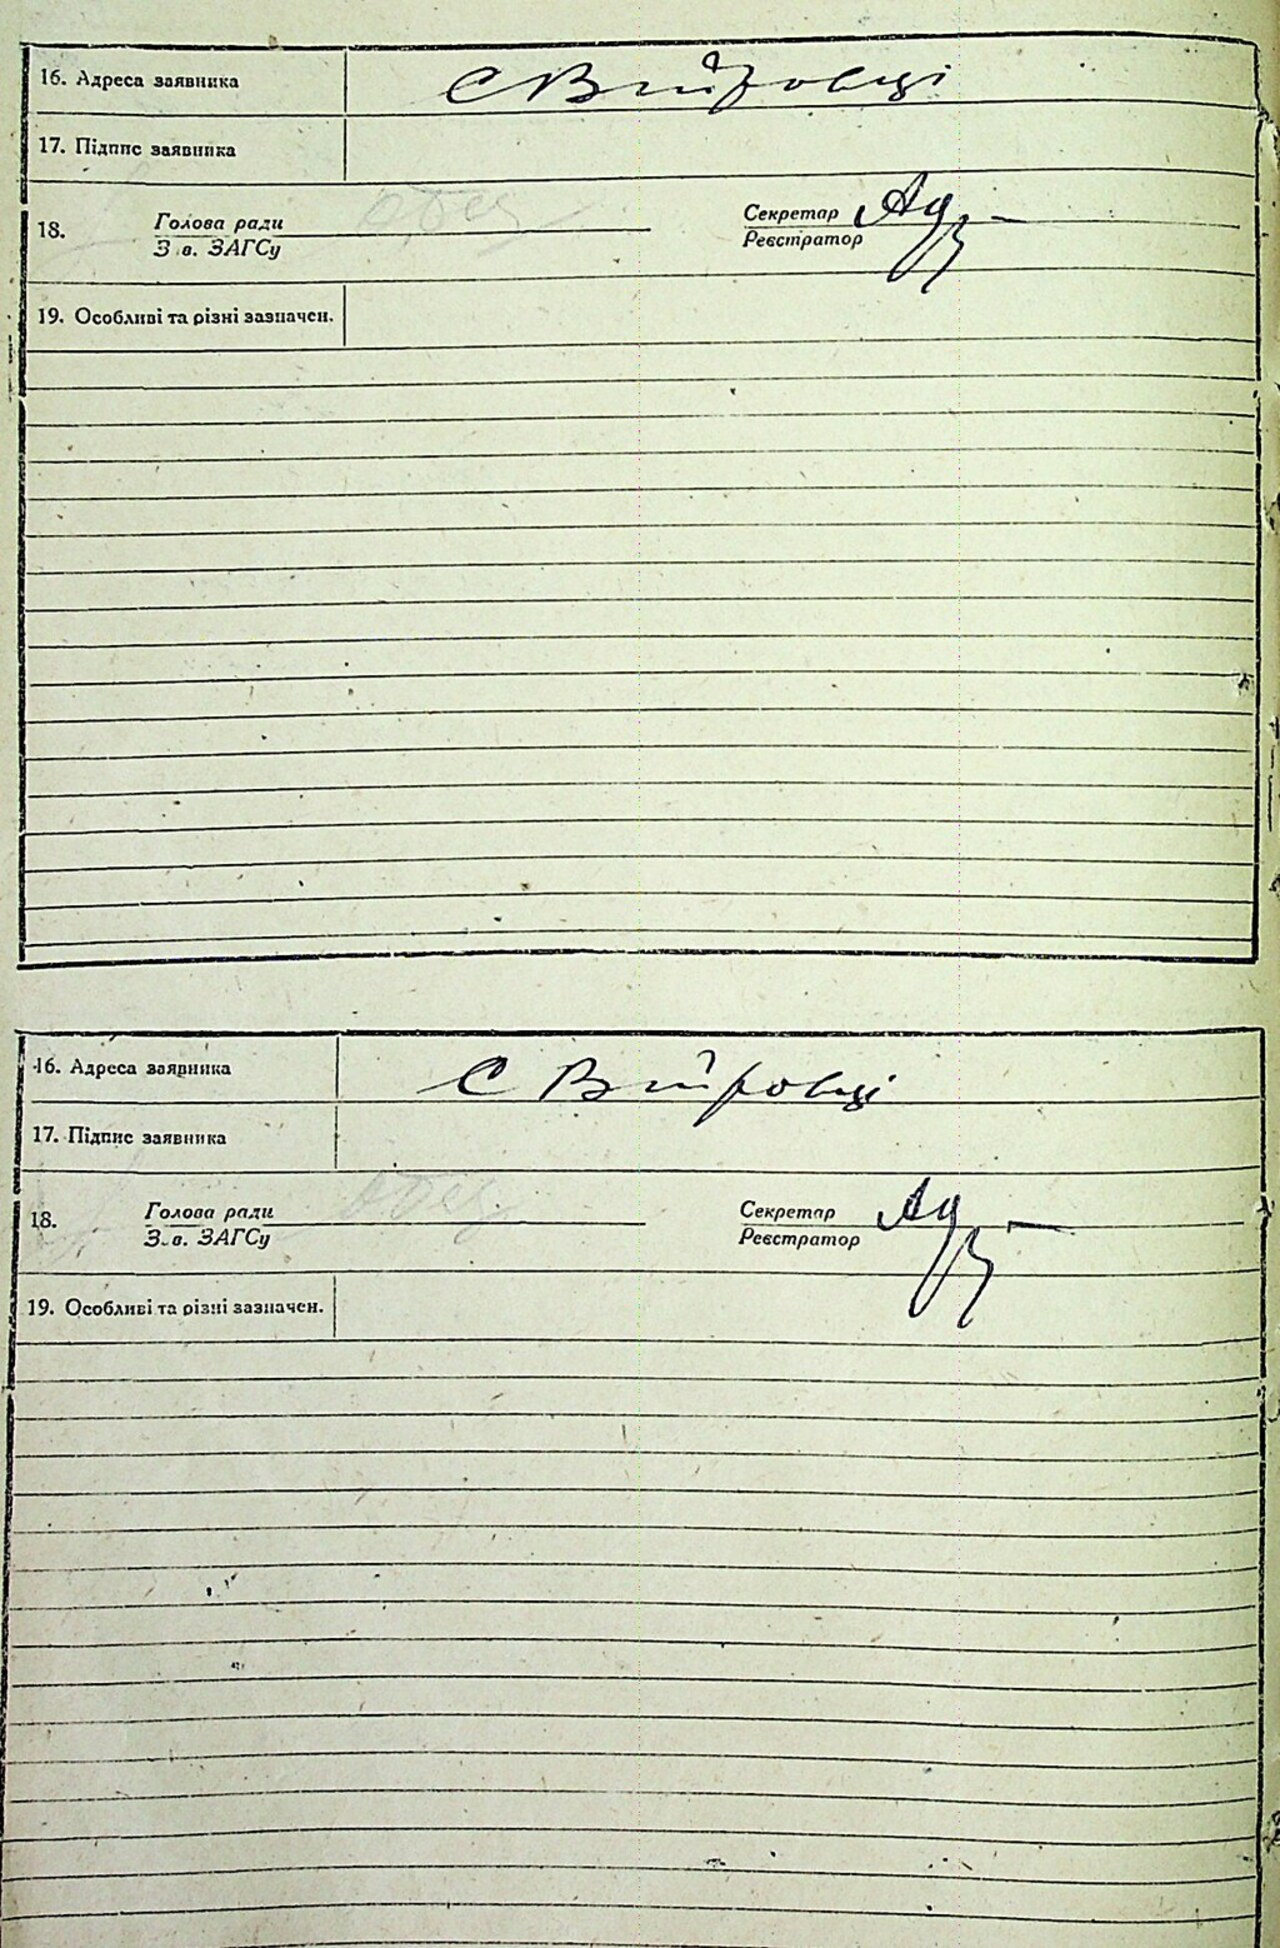 16. Адреса заявника с Вітровці
17. Підпис заявника
18. Голова ради Секретар
З.в. ЗАГСу Реєстратор
19. Особливі та різні зазначен.
16. Адреса заявника с Вітровці
17. Підпис заявника
18. Голова ради Секретар
З.в. ЗАГСу Реєстратор
19. Особливі та різні зазначен.